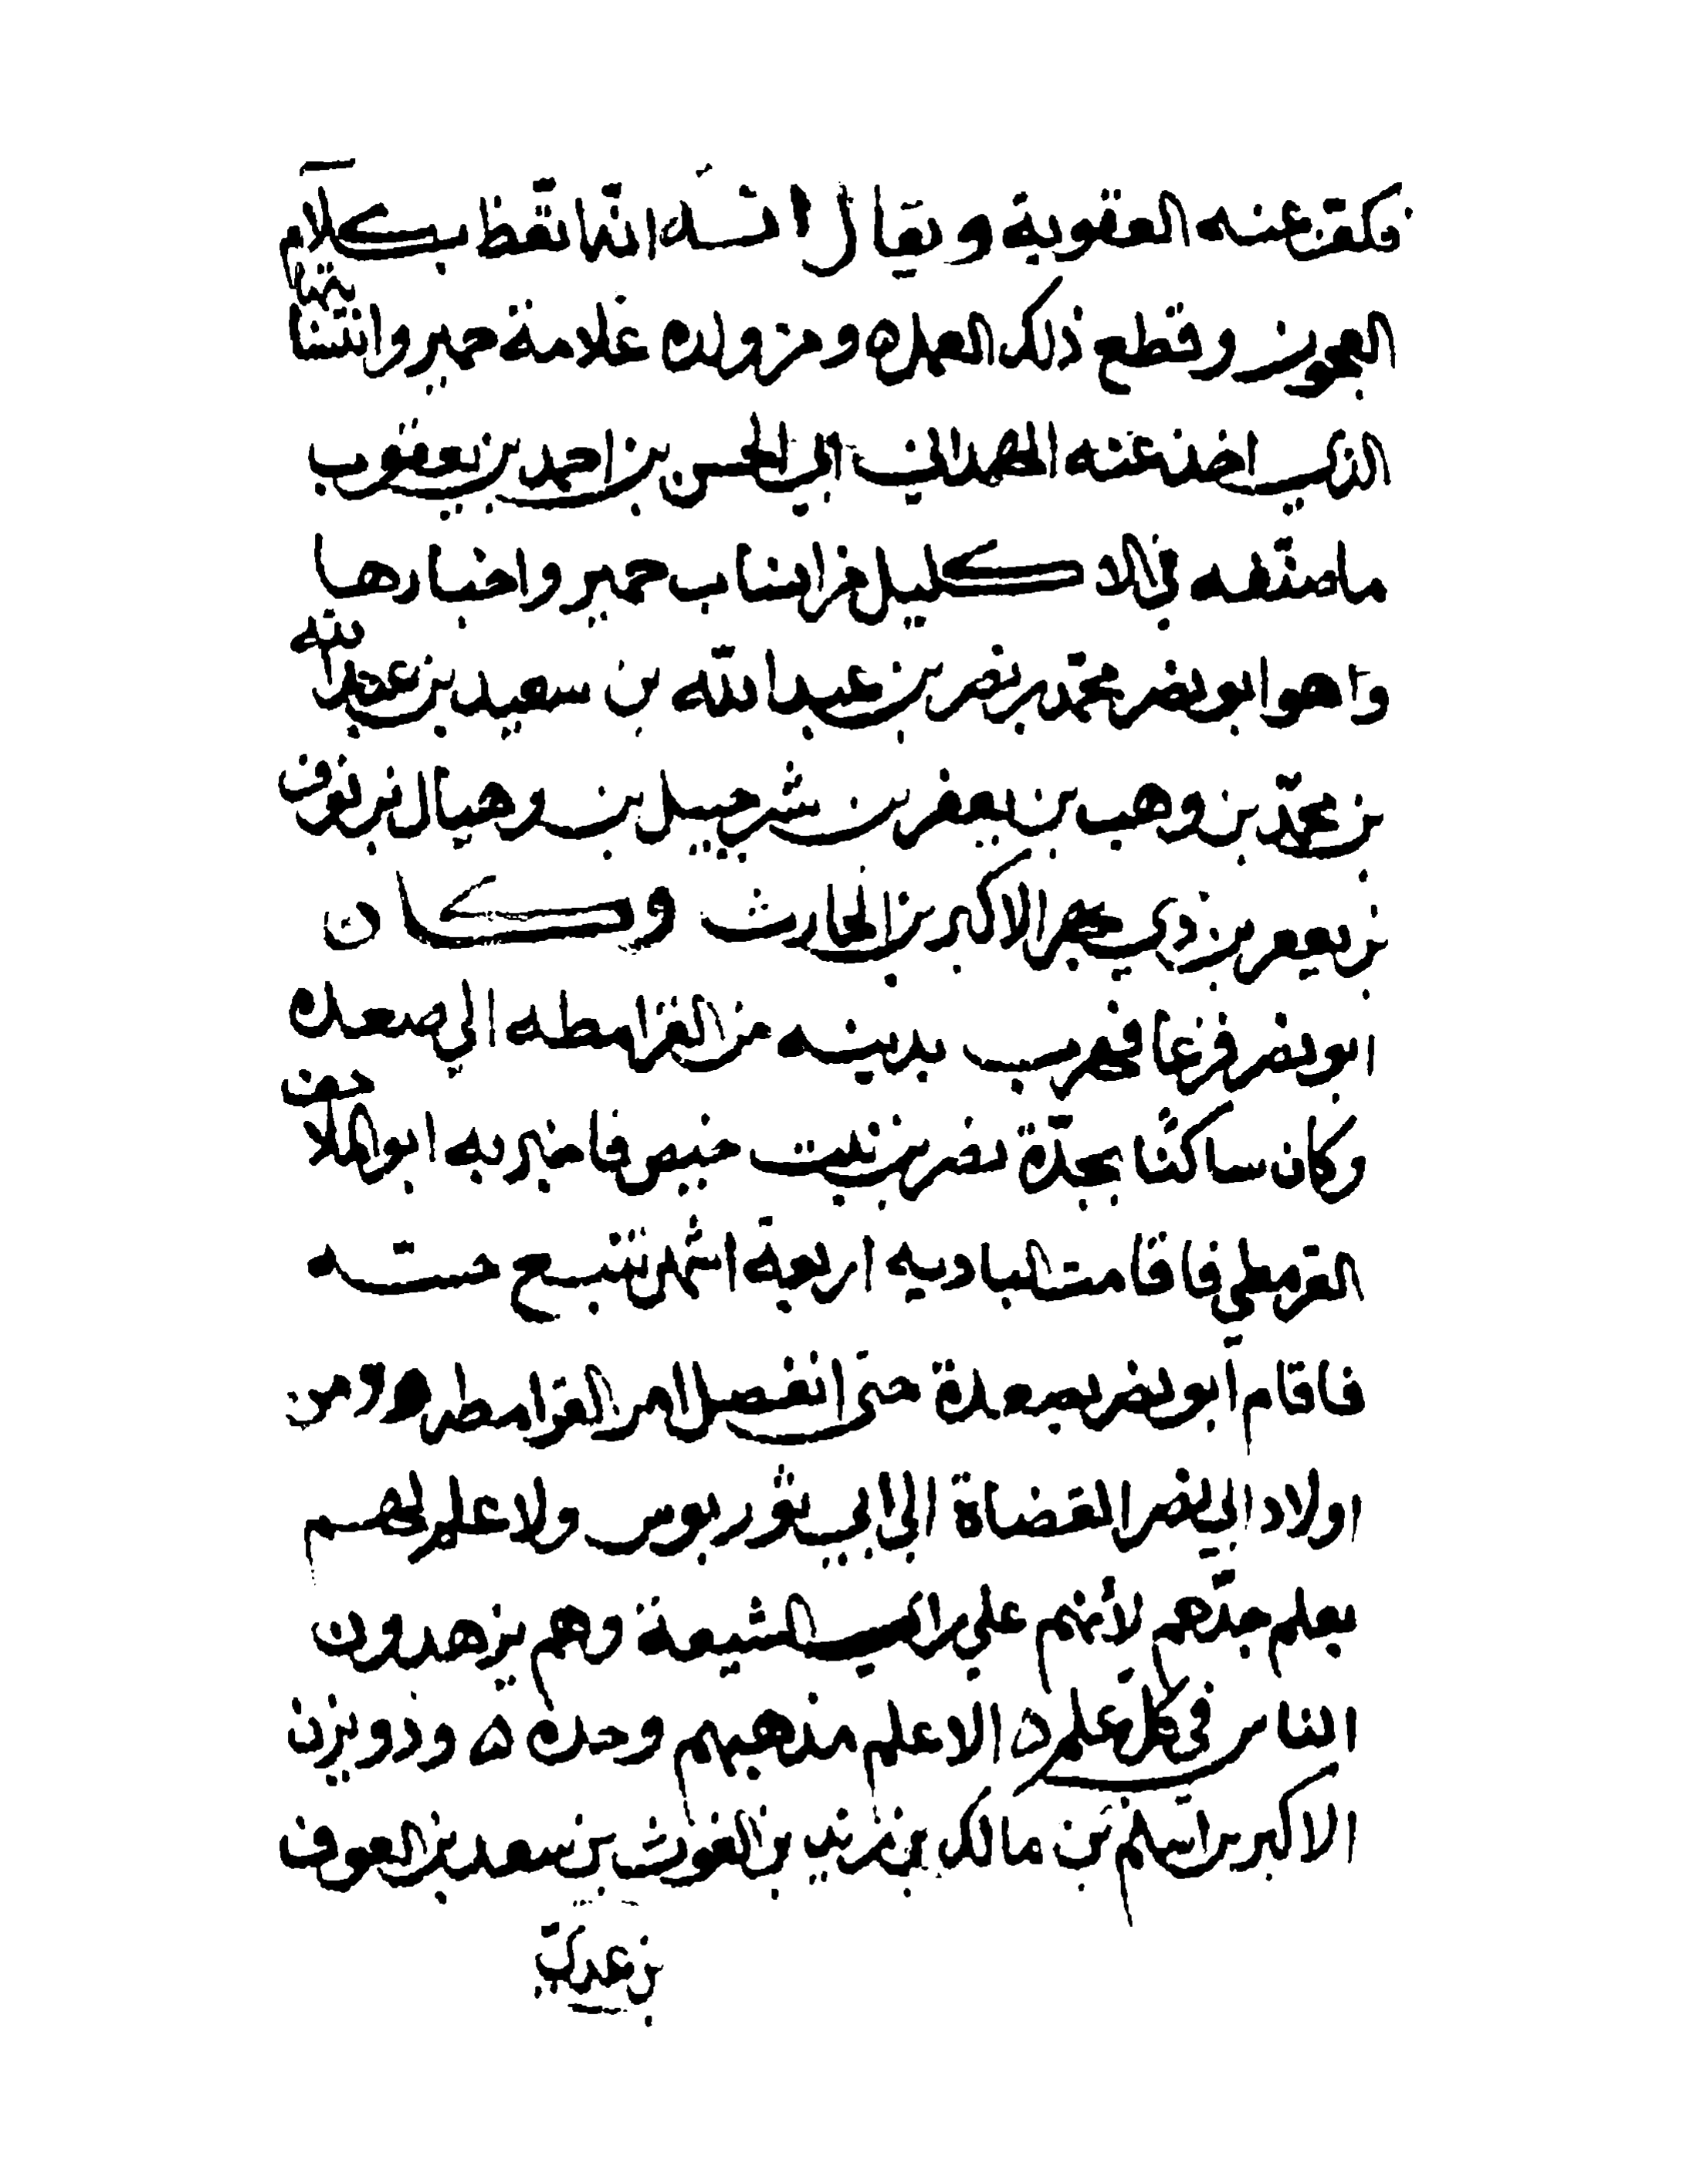 فكف عنه العقوبة ويقال انه انما تقظ بكلام
العجوز وقطع ذلك العمل ه ومن ولده علامة حمير وانتسابها
الذي اخذ عنه الهمداني ابي الحسن بن احمد بن يعقوب
ما صنفه في الاكليل من انساب حمير واخبارها
وهو ابو نصر محمد بن نصر بن عبد الله بن سعيد بن عبد الله
بن محمد بن وهب بن يعفر بن شرحبيل بن وهبال بن نوف
بن يعفر بن ذي سحر الاكبر بن الحارث وكان
ابو نصر فزعا فهرب بدينه من القرامطه الى صعده
وكان ساكنا بجدة نصر بن بيت حنبص فاخبر به ابو الملاحف
القرمطي فاقامت البادية اربعة اشهر تتبع حسه
فاقام ابو نصر بصعدة حتى انفصل امر القرامطه ه ومن
اولاد ابي نصر القضاة الى ابي ثور ببوس ولا علم لهم
بعلم جدهم لأنهم على راي الشيعة وهم يزهدون
الناس في كل علم الا علم مذهبهم وحده ه وذو يزن
الاكبر بن اسلم بن مالك بن زيد بن الغوث بن سعد بن العوف
بن عدي